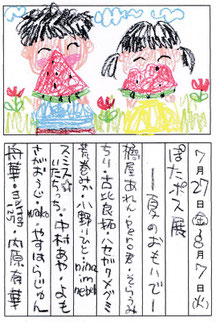 7月27日(金)8月7日(火)
ぽたポス展
―夏のおもいで―
橘屋あれん・pero君・そらうみ
ちり・古比良拓・ハセガワメグミ
荒巻みか・小野りひと・nina
スミス☆
いたちっち・中村あや・よも
さがおうじ・wako・やすはらじゅん
将華・内原有華